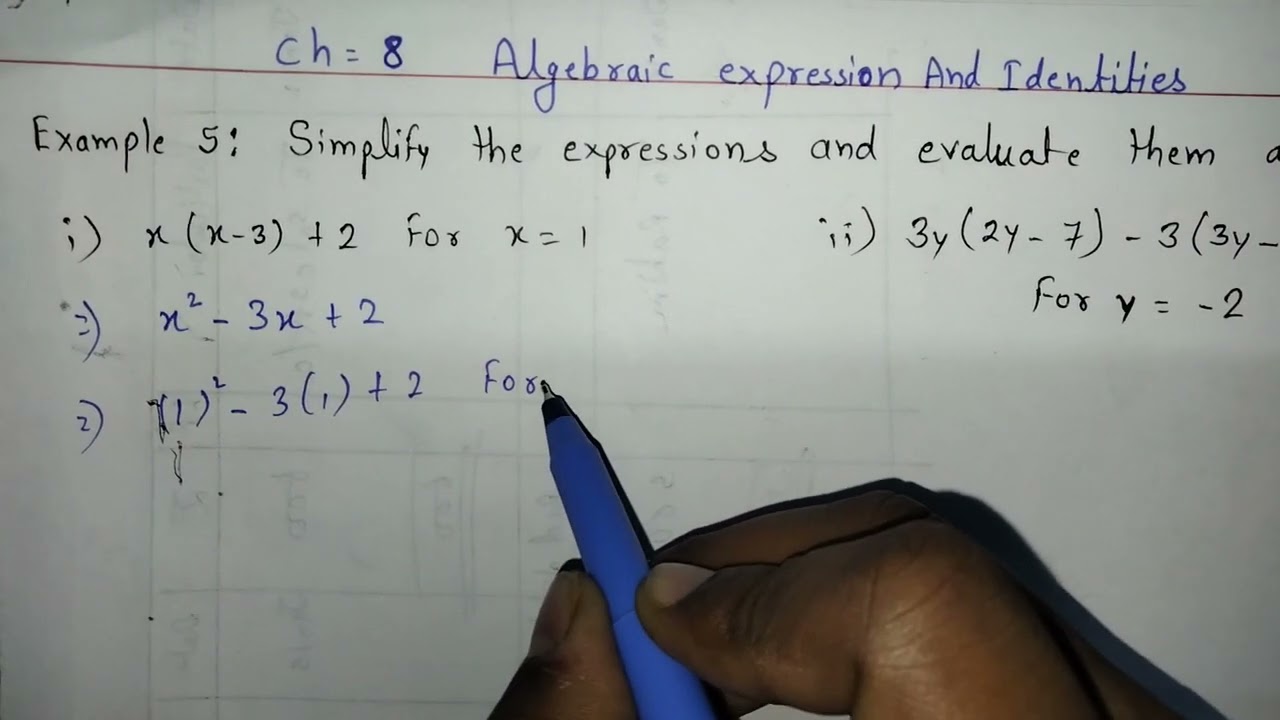 Ch = 8 Algebraic expression And Identities
Example 5: Simplify the expressions and evaluate them a
i) x(x-3) + 2 for x = 1
ii) 3y(2y - 7) - 3(3y -
for y = -2
=) x² - 3x + 2
=) (1)² - 3(1) + 2 For